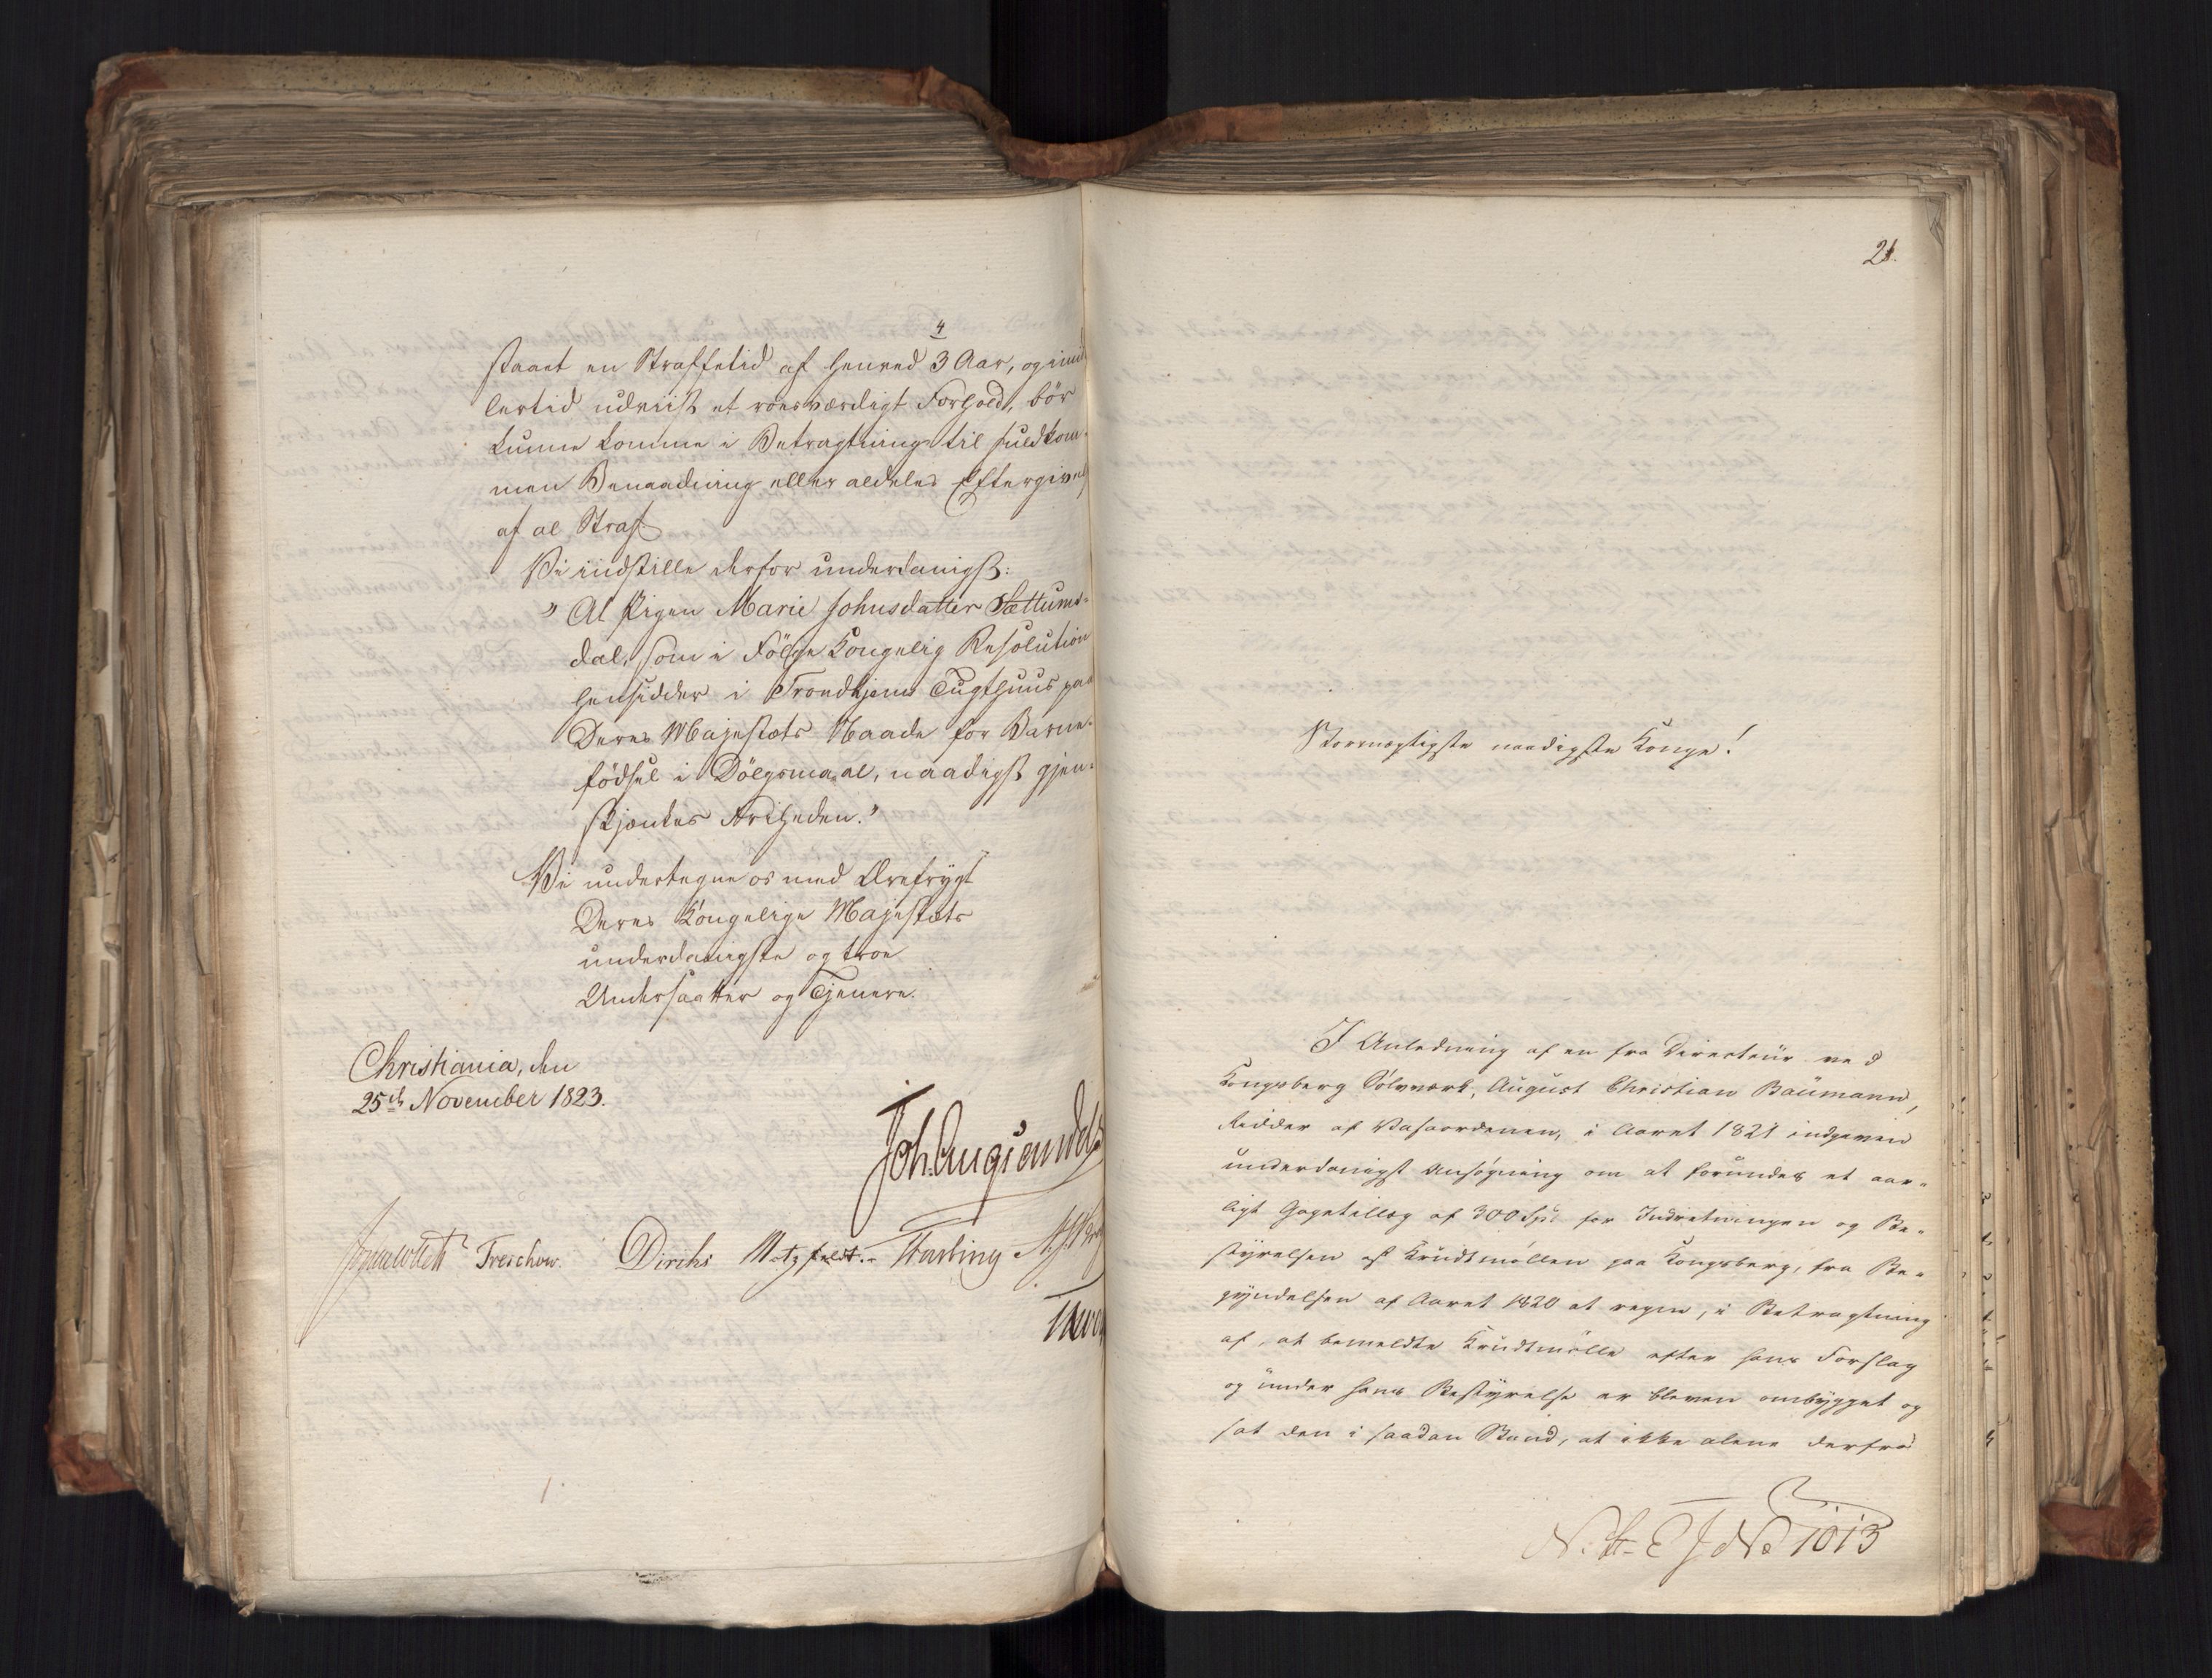 staaet en Straffetid af henved 3/4 Aar, og imid
lertid udviist et roesværdigt Forhold, bör
kunne komme i Betragtning til fuldkom-
men Benaadning eller aldeles Eftergivel
af al Straf.
Vi indstille derfor underdanigst:
"At Pigen Marie Johnsdatter Sættums-
dal, som i Fölge Kongelig Resolution
hensidder i Trondhjems Tugthuus paa
Deres Majestæts Naade for Barne-
födsel i Dölgsmaal, naadigst gjen-
skjænkes Friheden."
Vi undertegne os med Ærefrygt
Deres Kongelige Majestæts
underdanigste og troe
Undersaatter og Tjenere.
Christiania, den
25de November 1823.
Joh. Aug. Sandels
Jonas Collett Treschow. Diriks Motzfeldt. Fasting
21.
Stormægtigste naadigste Konge!
I Anledning af en fra Directeur ved
Kongsberg Sölvværk, August Christian Baumann,
Ridder af Vasaordenen, i Aaret 1821 indgiven
underdanigst Ansøgning om at forundes et aar-
ligt Gagetillæg af 300 Spd. for Indretningen og Be-
styrelsen af Krudtmøllen paa Kongsberg, fra Be-
gyndelsen af Aaret 1820 at regne, i Betragtning
af, at bemeldte Krudtmølle efter hans Forslag
og under hans Bestyrelse er bleven ombygget og
sat den i saadan Stand, at ikke alene derfra
No 1013